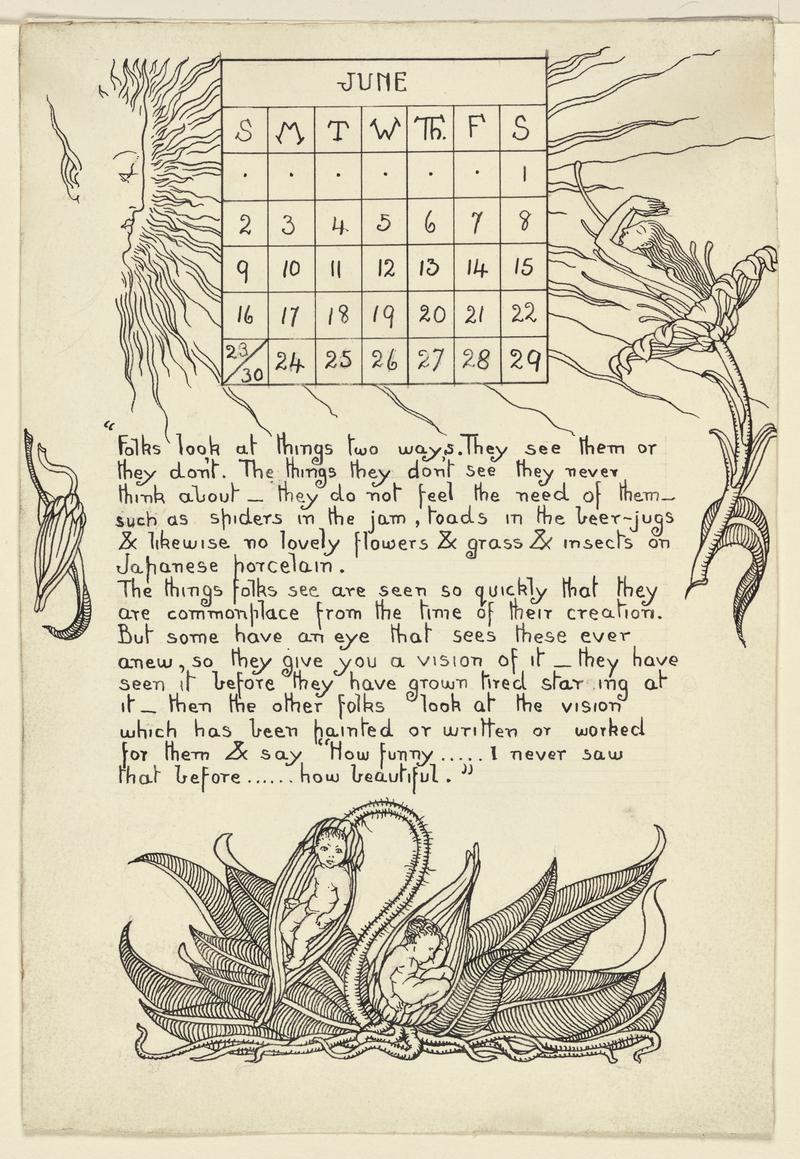 JUNE
S M T W Th. F S
. . . . . . 1
2 3 4 5 6 7 8
9 10 11 12 13 14 15
16 17 18 19 20 21 22
23/30 24 25 26 27 28 29
"Folks look at things two ways. They see them or
they don't. The things they don't see they never
think about — they do not feel the need of them—
such as spiders in the jam, toads in the beer-jugs
& likewise no lovely flowers & grass & insects on
Japanese porcelain.
The things folks see are seen so quickly that they
are commonplace from the time of their creation.
But some have an eye that sees these ever
anew, so they give you a vision of it — they have
seen it before they have grown tired star ing at
it — then the other folks look at the vision
which has been painted or written or worked
for them & say "How funny ..... I never saw
that before ...... how beautiful."